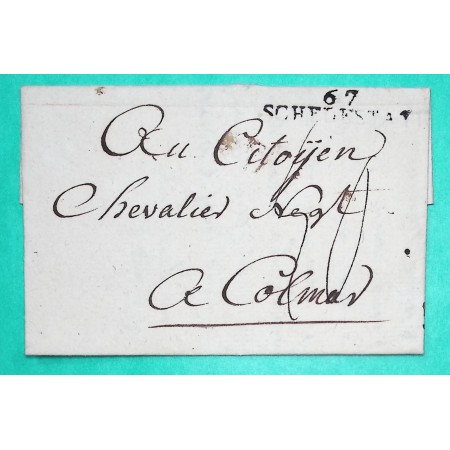 67
SCHELESTAT
Au Citoÿen
Chevalier Negt
A Colmar